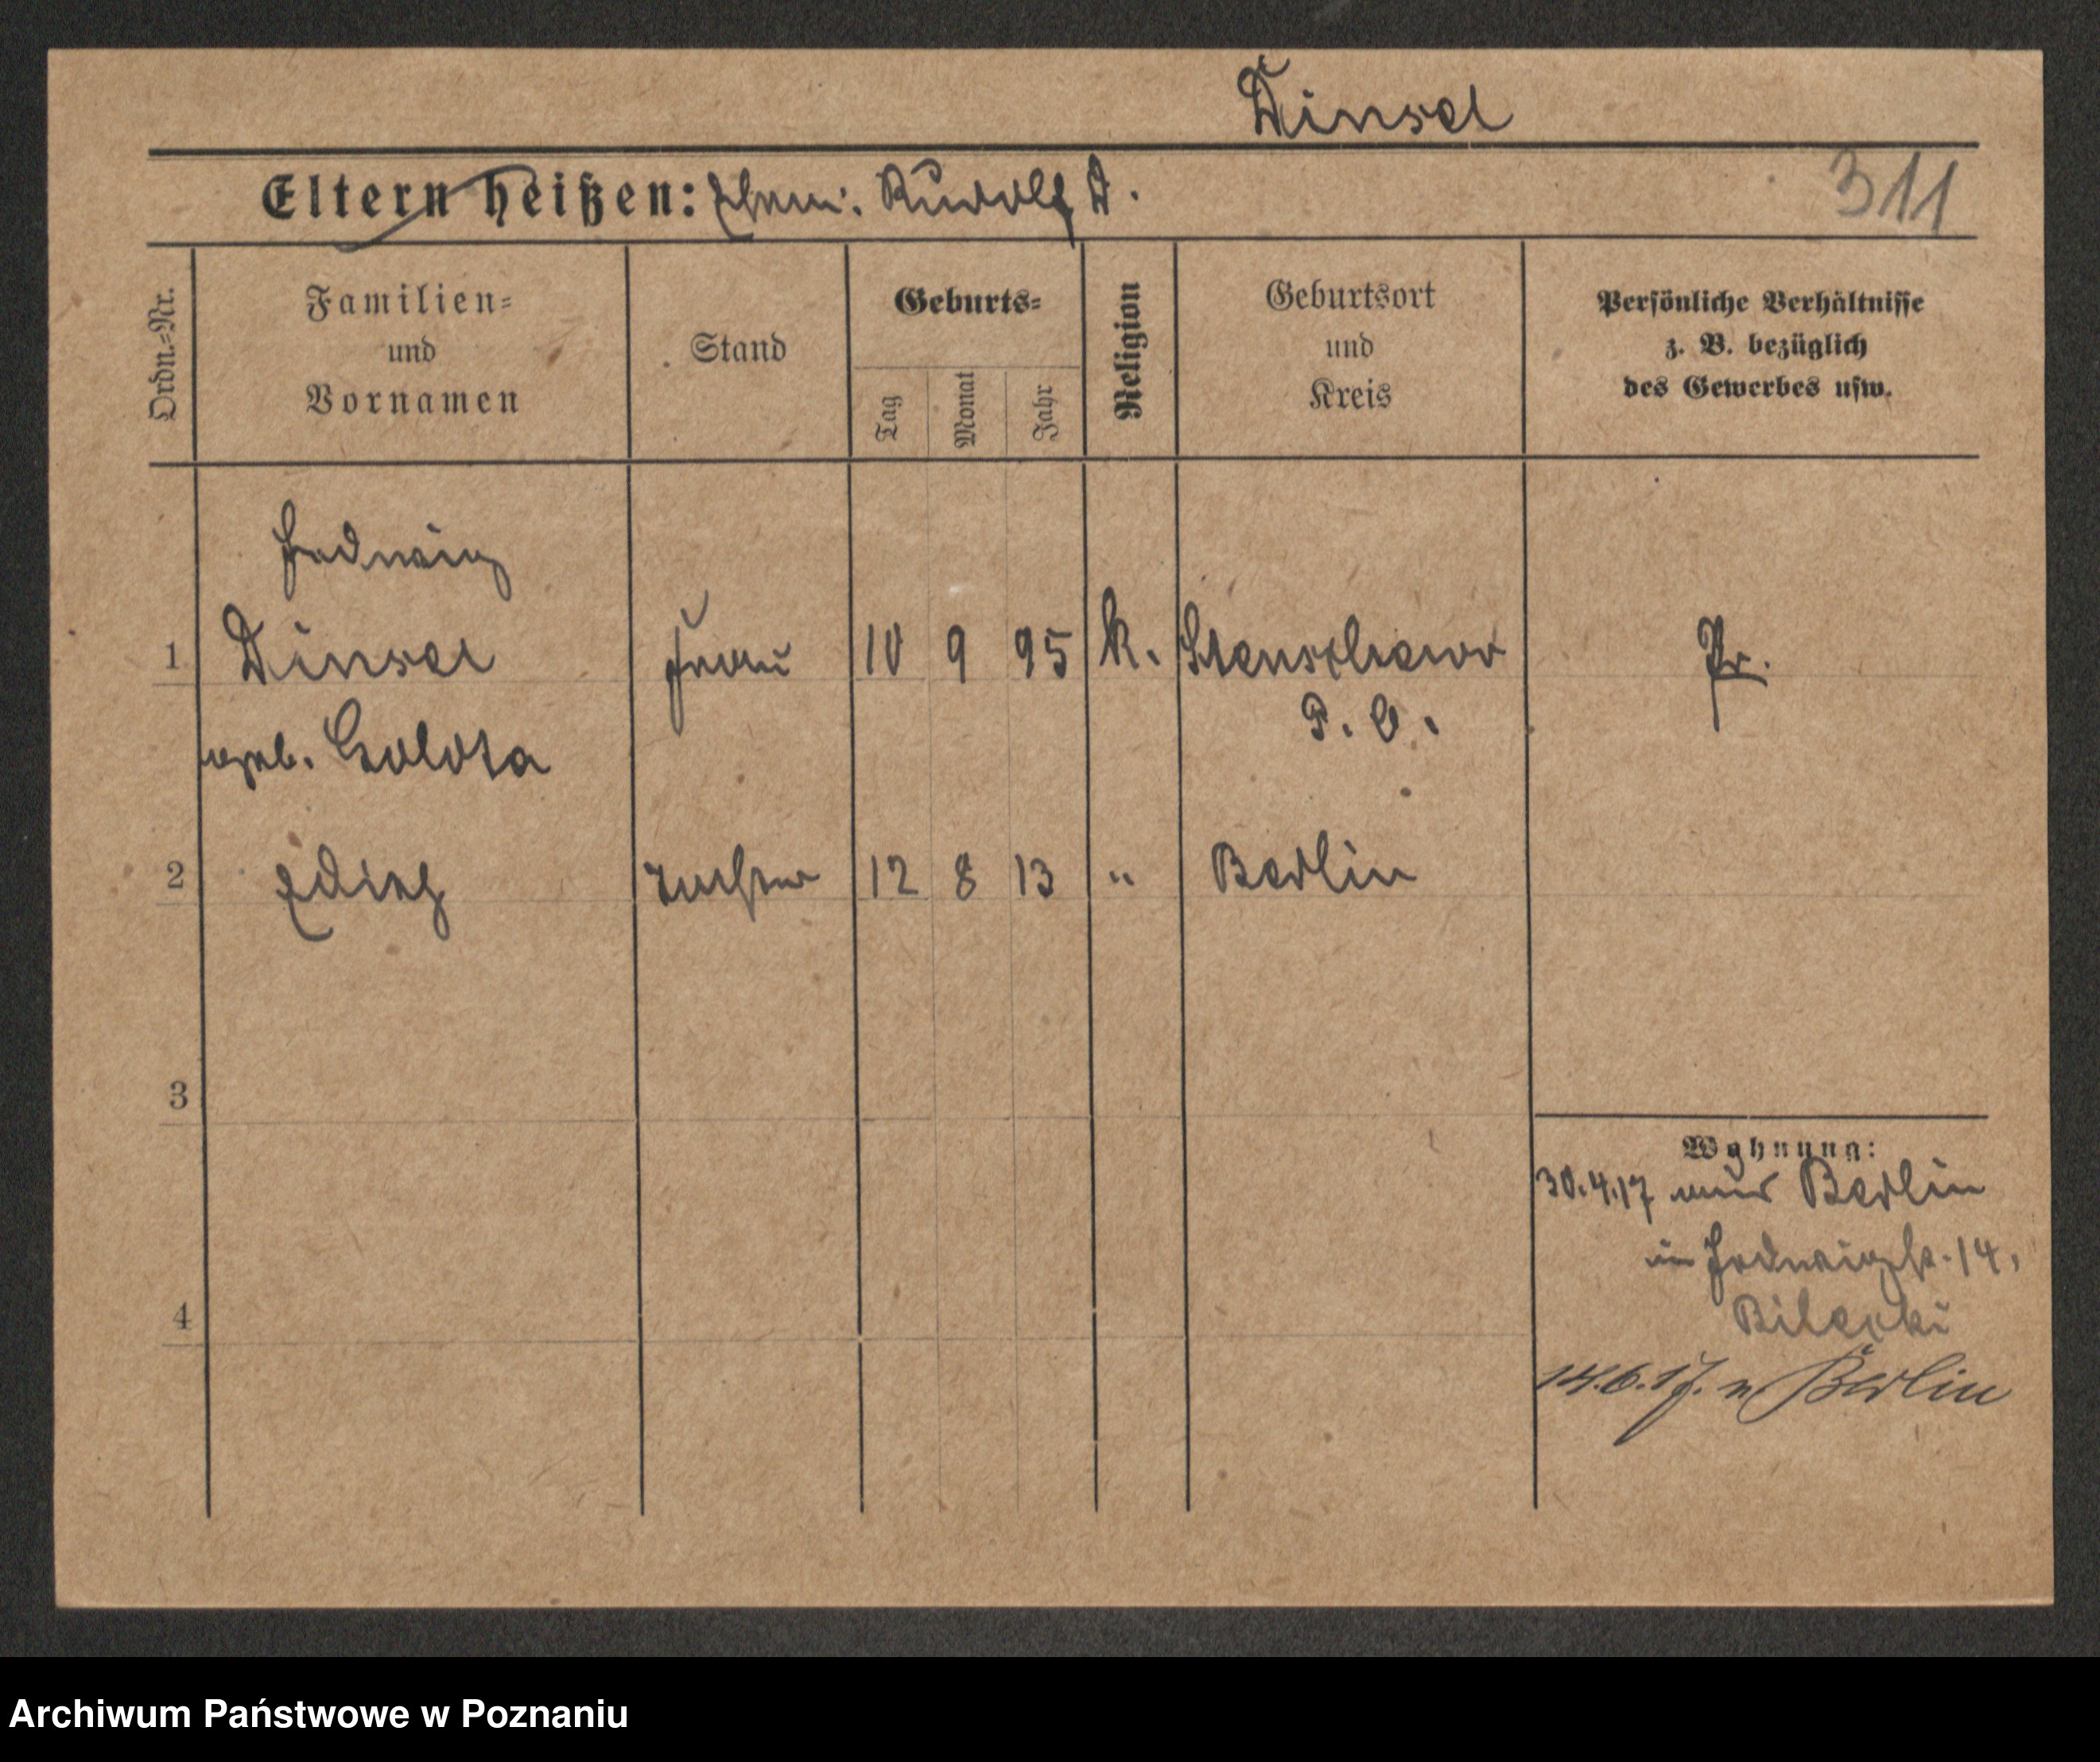 Dinsel
Eltern heißen: Ehem. Rudolf D.
311
Ordn.=Nr.
Familien=
und
Vornamen
Stand
Geburts=
Tag
Monat
Jahr
Religion
Geburtsort
und
Kreis
Persönliche Verhältnisse
z. B. bezüglich
des Gewerbes usw.
Hedwig
1 Dinsel Frau 10 9 95 k. Stenschewo Pr.
P. O.
geb. Golota
2 Edith Tochter 12 8 13 " Berlin
3
Wohnung:
30.4.17 aus Berlin
in Hedwigstr. 14,
4
Bilecki
14.6.17. n Berlin
Archiwum Państwowe w Poznaniu